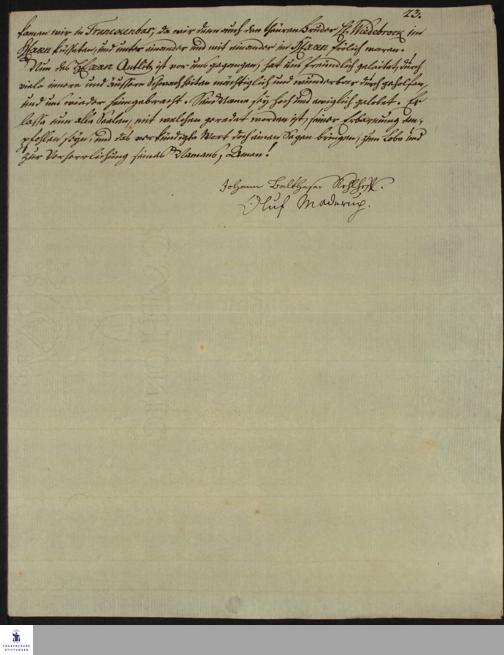 23.
kamen wir in Trancenbar, da wir dann auch den theuren Bruder H. Wiedebrock im
HErrn küsseten, und unter einander und mit einander im HErrn frölich waren.
Nun des HErrn Antlitz ist vor uns gegangen, hat uns freundlich geleitet, durch
viele innere und äussere Schwachheiten mächtiglich und wunderbar durchgeholfen,
und uns wieder heimgebracht. Sein Name sey hoch und ewiglich gelobet. Er
lasse nun alle Seelen, mit welchen geredet worden ist, seiner Erbarmung em-
pfohlen seyn, und das verkündigte Wort doch einen Segen bringen, zum Lobe und
zur Verherrlichung seines Namens, Amen!
Johann Balthasar Kohlhoff.
Oluf Maderup.
FRANCKESCHE
STIFTUNGEN